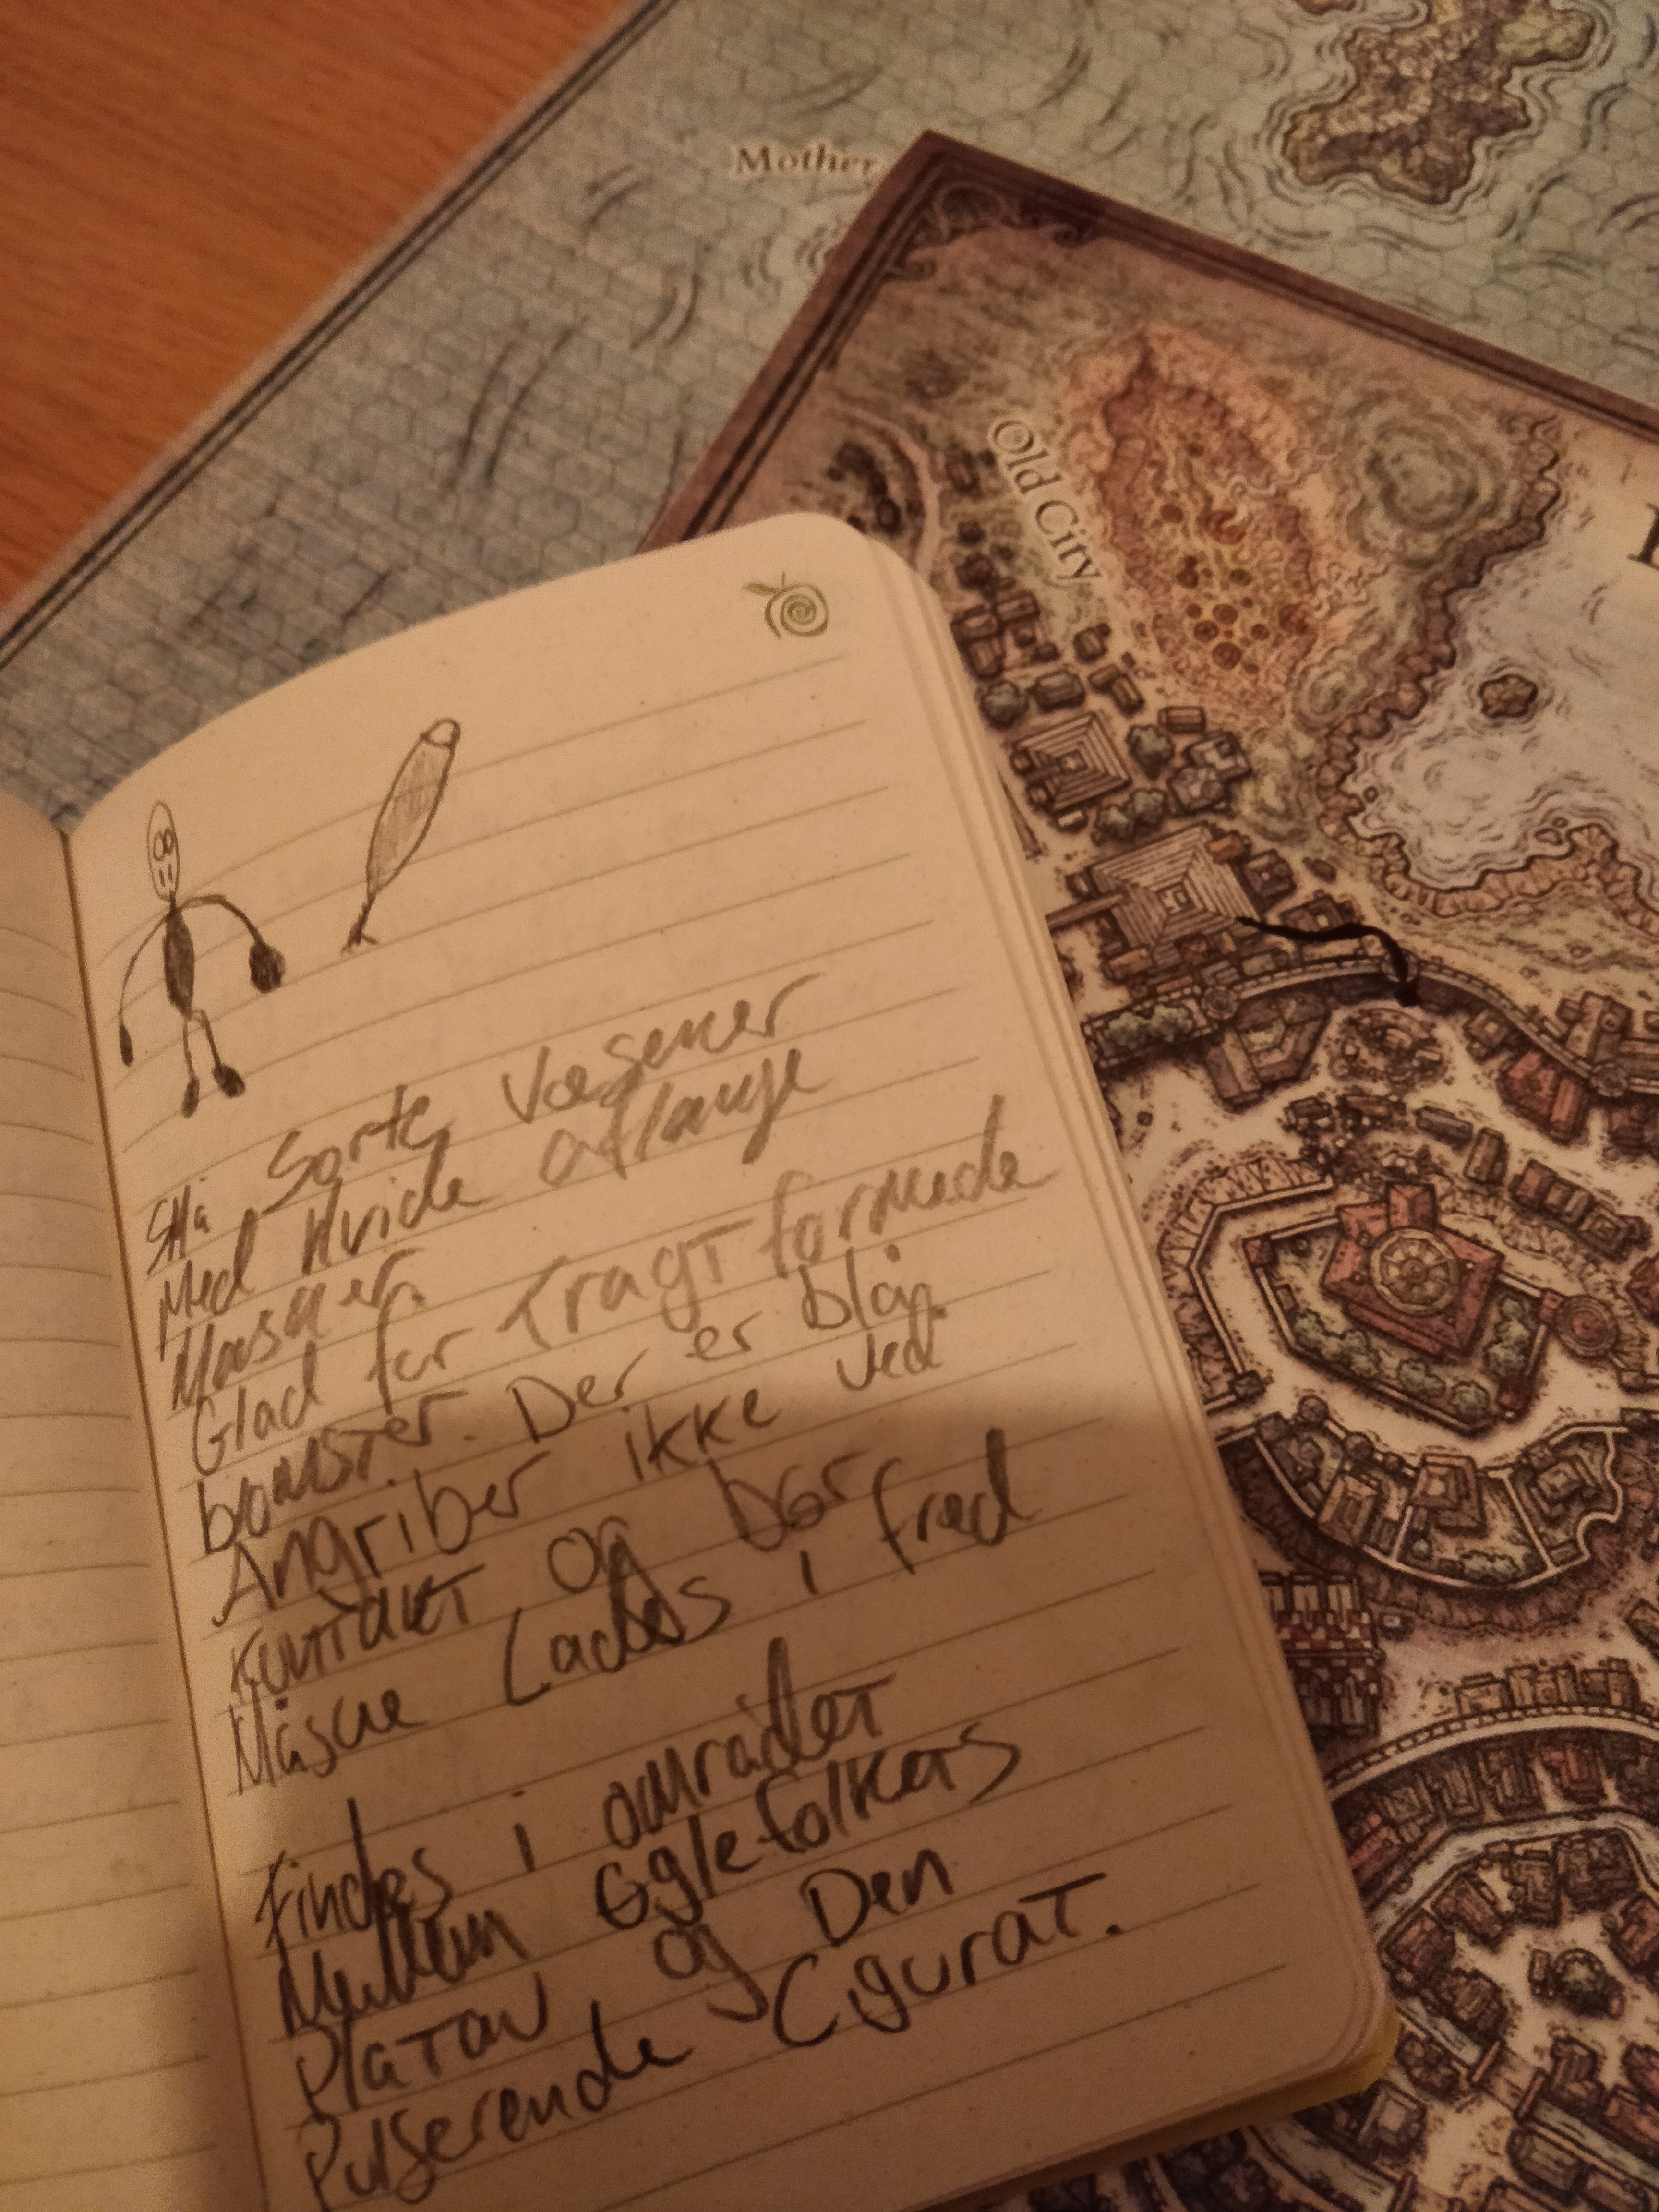 Mother
Old City
Små Sorte Væsener
Med Hvide aflange
Masker.
Glad for Tragt formede
blomster. Der er blå.
Angriber ikke ved
kontakt og bør
Måske Lades i fred
Findes i området
Mellem Øglefolkets
Platau og Den
Pulserende Cigurat.